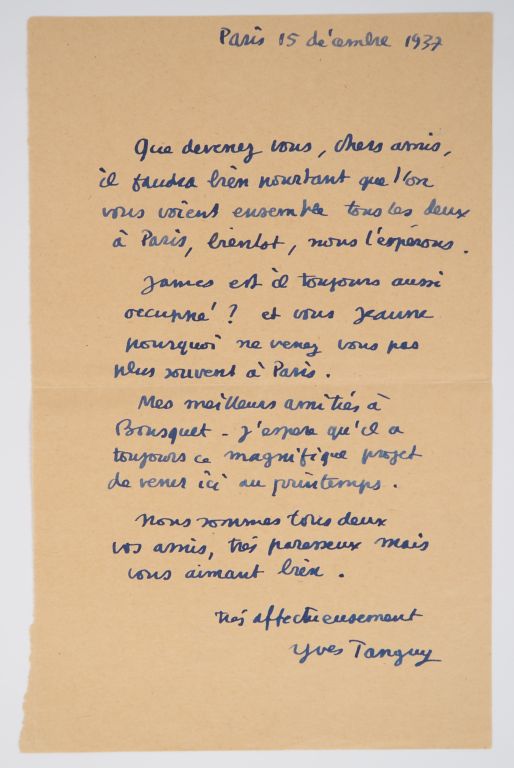 Paris 15 décembre 1937
Que devenez vous, chers amis,
il faudra bien pourtant que l'on
vous voient ensemble tous les deux
à Paris, bientot, nous l'espérons.
James est il toujours aussi
occuppé ? et vous Jeanne
pourquoi ne venez vous pas
plus souvent à Paris.
Mes meilleurs amitiés à
Bousquet - j'espere qu'il a
toujours ce magnifique projet
de venir ici au printemps.
Nous sommes tous deux
vos amis, très paresseux mais
vous aimant bien.
très affectueusement
Yves Tanguy